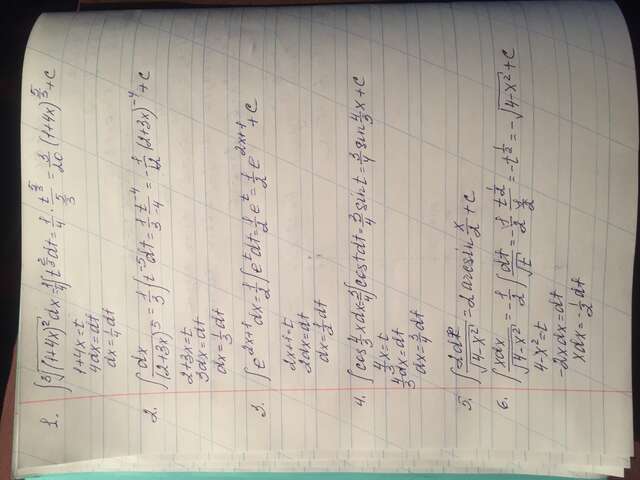 1. ∫ ∛(1+4x)² dx = 1/4 ∫ t^(2/3) dt = 1/4 · t^(5/3)/(5/3) = 3/20 (1+4x)^(5/3) + C
1+4x=t
4dx=dt
dx=1/4 dt
2. ∫ dx/(2+3x)^5 = 1/3 ∫ t^(-5) dt = 1/3 t^(-4)/(-4) = -1/12 (2+3x)^(-4) + C
2+3x=t
3dx=dt
dx=1/3 dt
3. ∫ e^(2x+1) dx = 1/2 ∫ e^t dt = 1/2 e^t = 1/2 e^(2x+1) + C
2x+1=t
2dx=dt
dx=1/2 dt
4. ∫ cos 4/3 x dx = 3/4 ∫ cos t dt = 3/4 sin t = 3/4 sin 4/3 x + C
4/3 x=t
4/3 dx=dt
dx=3/4 dt
5. ∫ 2dx/√(4-x²) = 2 arcsin x/2 + C
6. ∫ xdx/√(4-x²) = -1/2 ∫ dt/√t = -1/2 t^(1/2)/(1/2) = -t^(1/2) = -√(4-x²) + C
4-x²=t
-2xdx=dt
xdx=-1/2 dt